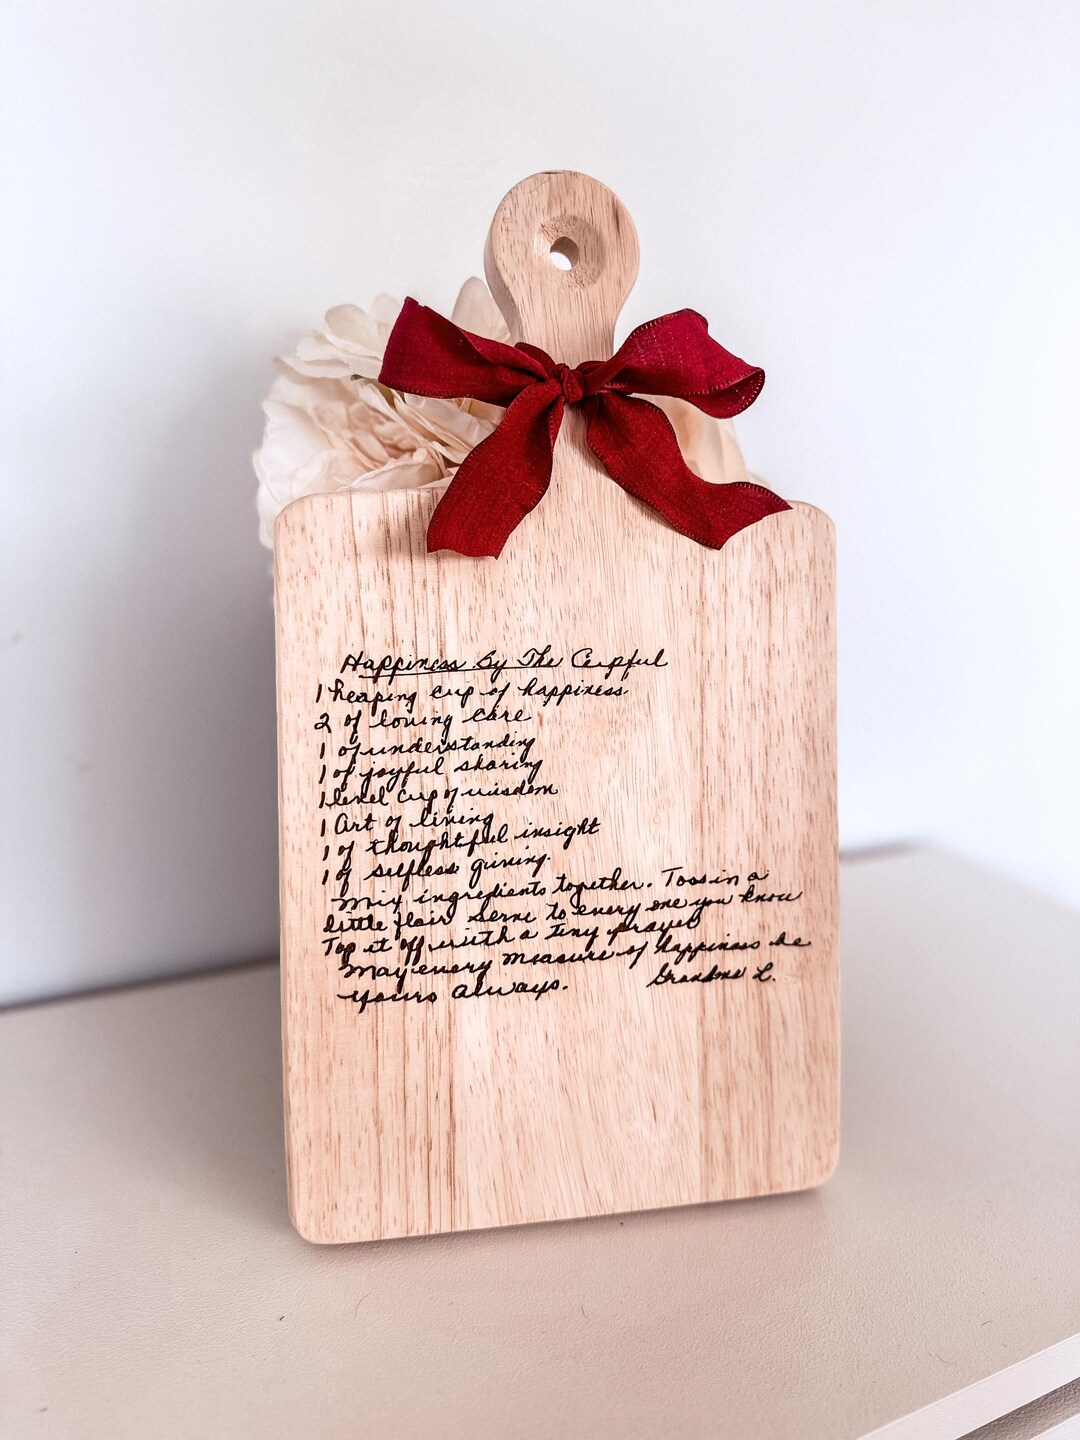 Happiness By The Cupful
1 heaping cup of happiness
2 of loving care
1 of understanding
1 of joyful sharing
1 level cup of wisdom
1 Art of living
1 of thoughtful insight
1 of selfless giving.
Mix ingredients together. Toss in a
little flair serve to every one you know
Top it off with a tiny prayer
May every measure of happiness be
yours always. Grandma L.